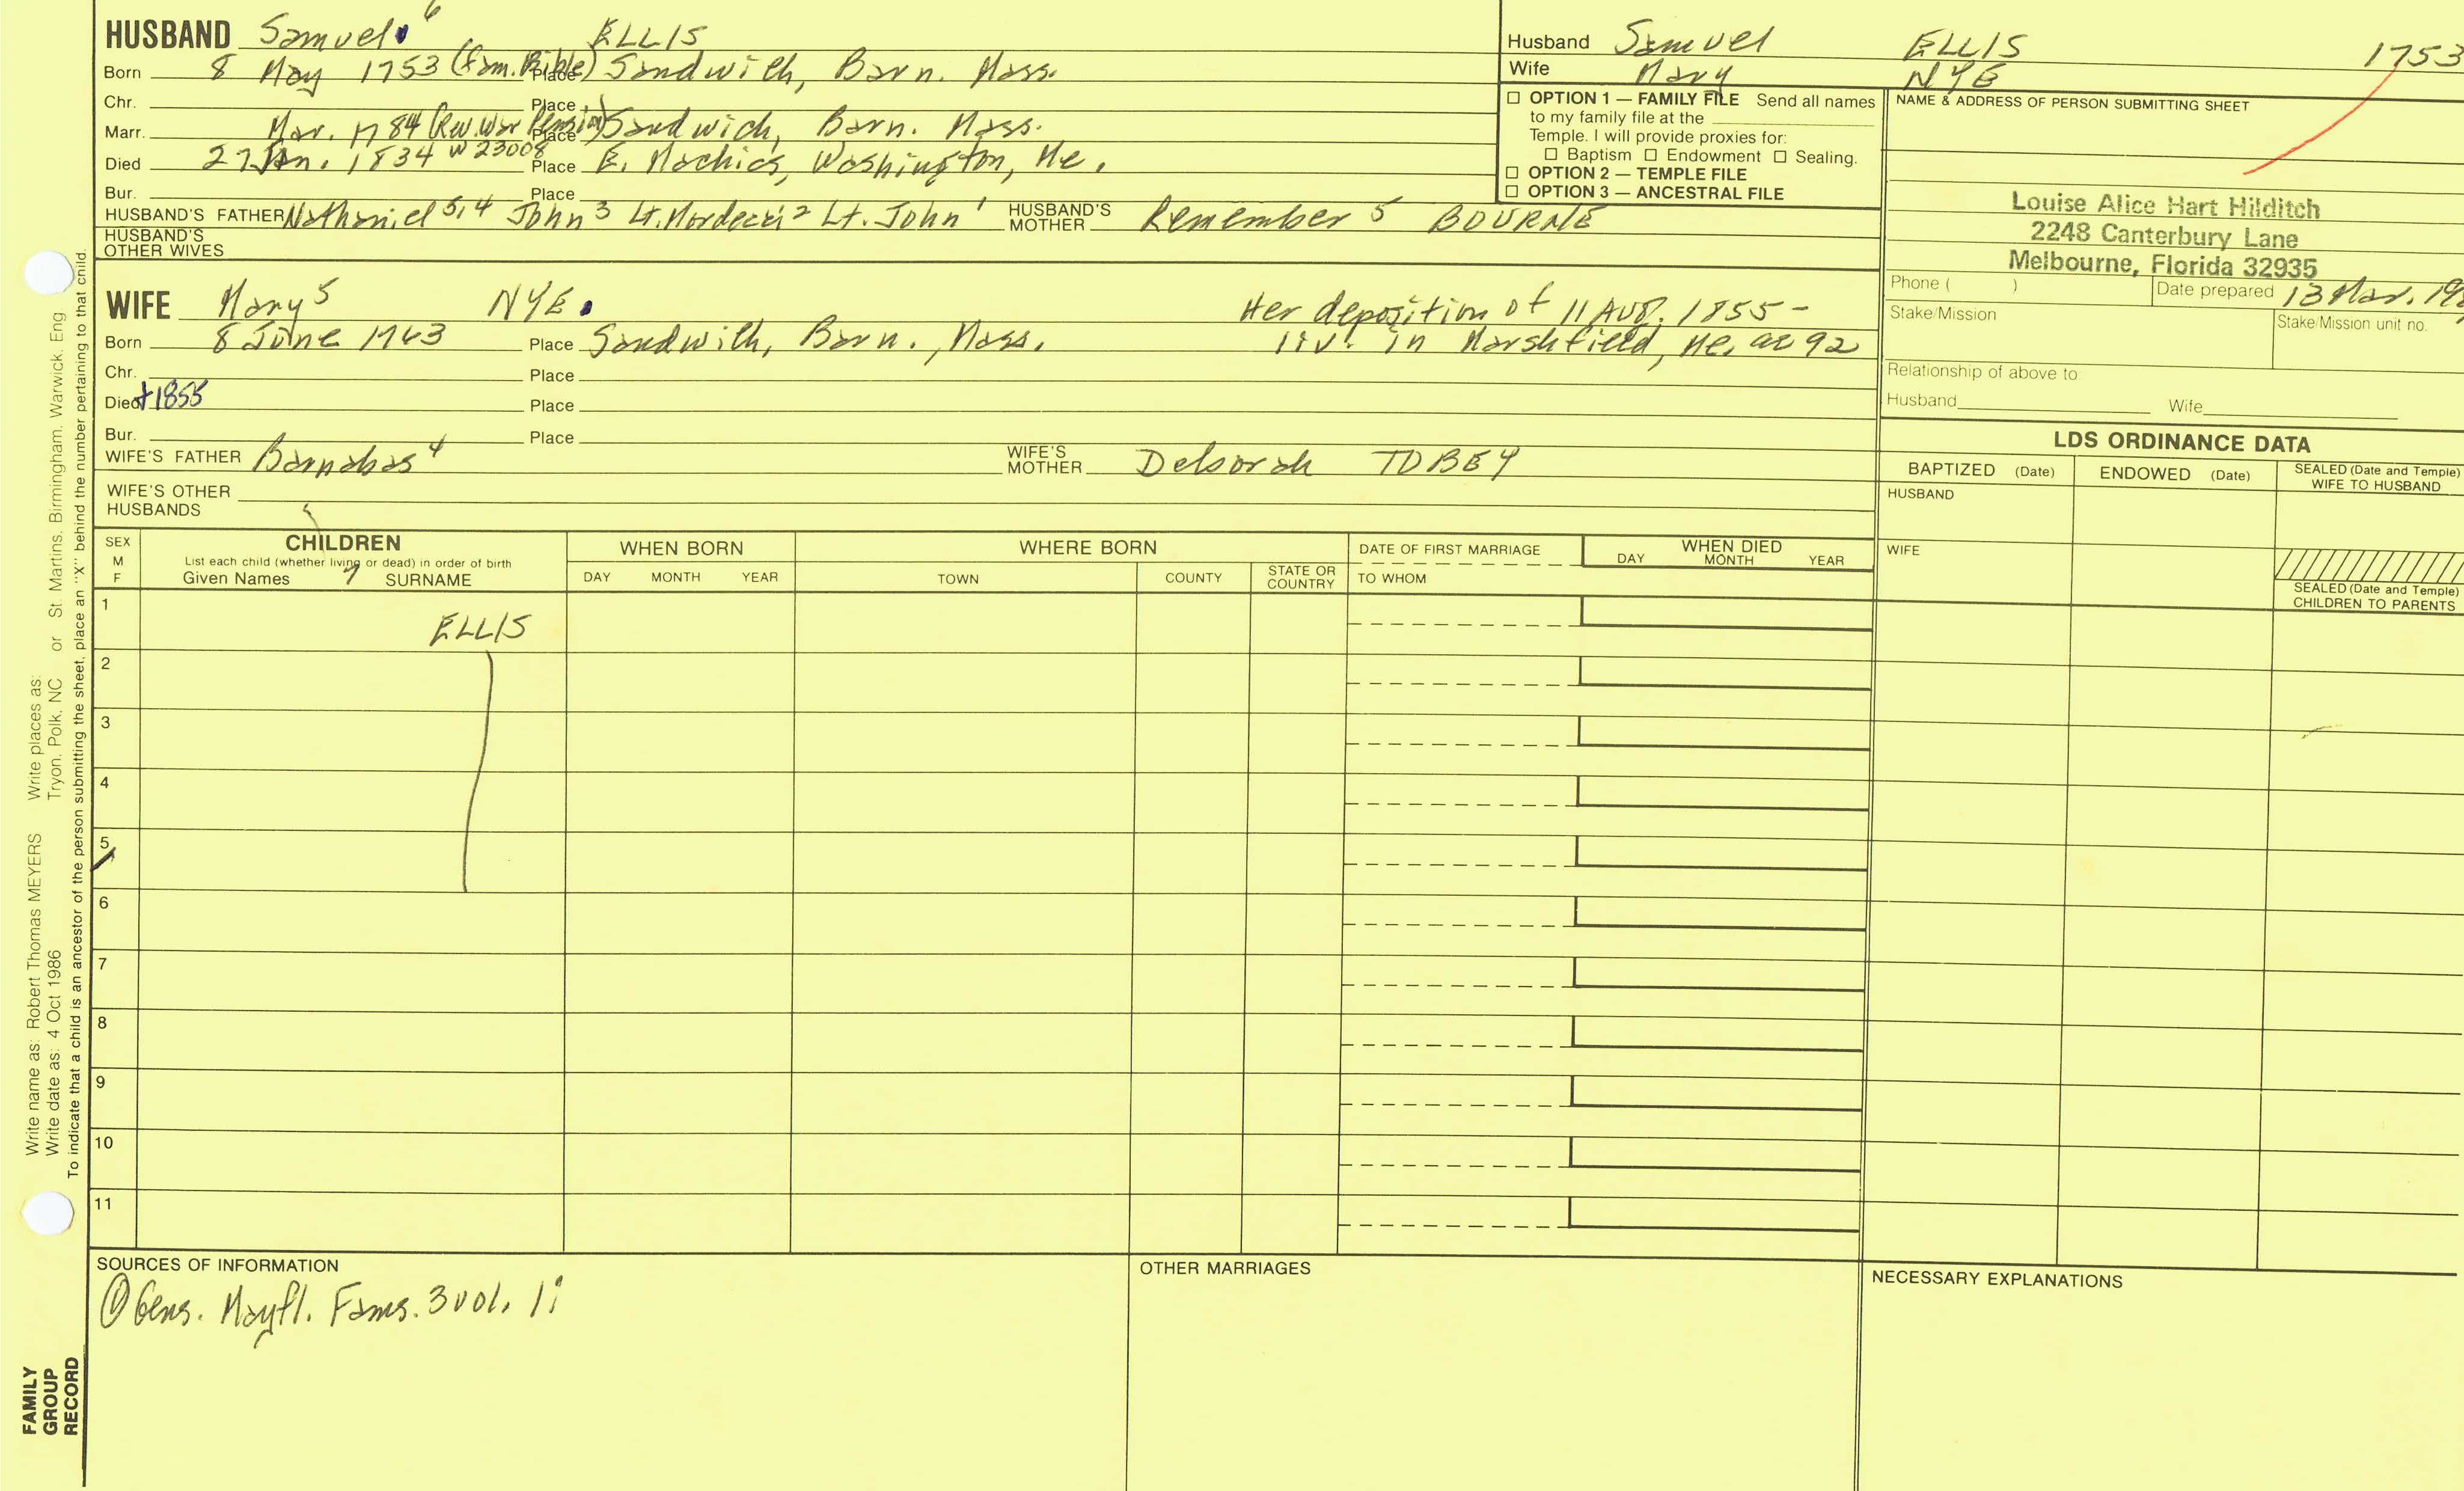 HUSBAND Samuel 6 ELLIS
Born 8 May 1753 (Fam. Bible) Place Sandwich, Barn. Mass.
Chr. Place
Marr. Mar. 1784 (Rev. War Pension) Place Sandwich, Barn. Mass.
Died 27 Jan. 1834 W 23008 Place E. Machias, Washington, Me.
Bur. Place
HUSBAND'S FATHER Nathaniel 5,4 John 3 Lt. Mordecai 2 Lt. John 1 HUSBAND'S MOTHER Remember 5 BOURNE
HUSBAND'S OTHER WIVES
WIFE Mary 5 NYE. Her deposition of 11 Aug. 1855 -
Born 8 June 1763 Place Sandwich, Barn., Mass. liv. in Marshfield, Me. ae 92
Chr. Place
Died +1855 Place
Bur. Place
WIFE'S FATHER Barnabas 4 WIFE'S MOTHER Deborah TOBEY
WIFE'S OTHER HUSBANDS
Husband Samuel ELLIS 1753
Wife Mary NYE
☐ OPTION 1 — FAMILY FILE Send all names
to my family file at the
Temple. I will provide proxies for:
☐ Baptism ☐ Endowment ☐ Sealing.
☐ OPTION 2 — TEMPLE FILE
☐ OPTION 3 — ANCESTRAL FILE
NAME & ADDRESS OF PERSON SUBMITTING SHEET
Louise Alice Hart Hilditch
2248 Canterbury Lane
Melbourne, Florida 32935
Phone ( ) Date prepared 13 Mar. 19
Stake/Mission Stake/Mission unit no.
Relationship of above to
Husband Wife
LDS ORDINANCE DATA
BAPTIZED (Date) ENDOWED (Date) SEALED (Date and Temple) WIFE TO HUSBAND
HUSBAND
WIFE
SEALED (Date and Temple)
CHILDREN TO PARENTS
SEX M F
CHILDREN
List each child (whether living or dead) in order of birth
Given Names 7 SURNAME
WHEN BORN
DAY MONTH YEAR
WHERE BORN
TOWN COUNTY STATE OR COUNTRY
DATE OF FIRST MARRIAGE
TO WHOM
WHEN DIED
DAY MONTH YEAR
1 ELLIS
2
3
4
5
6
7
8
9
10
11
SOURCES OF INFORMATION
① Gens. Mayfl. Fams. 3 vol. 1:
OTHER MARRIAGES
NECESSARY EXPLANATIONS
Write name as: Robert Thomas MEYERS Write places as:
Write date as: 4 Oct 1986 Tryon, Polk, NC or St. Martins, Birmingham, Warwick, Eng
To indicate that a child is an ancestor of the person submitting the sheet, place an "X" behind the number pertaining to that child.
FAMILY
GROUP
RECORD